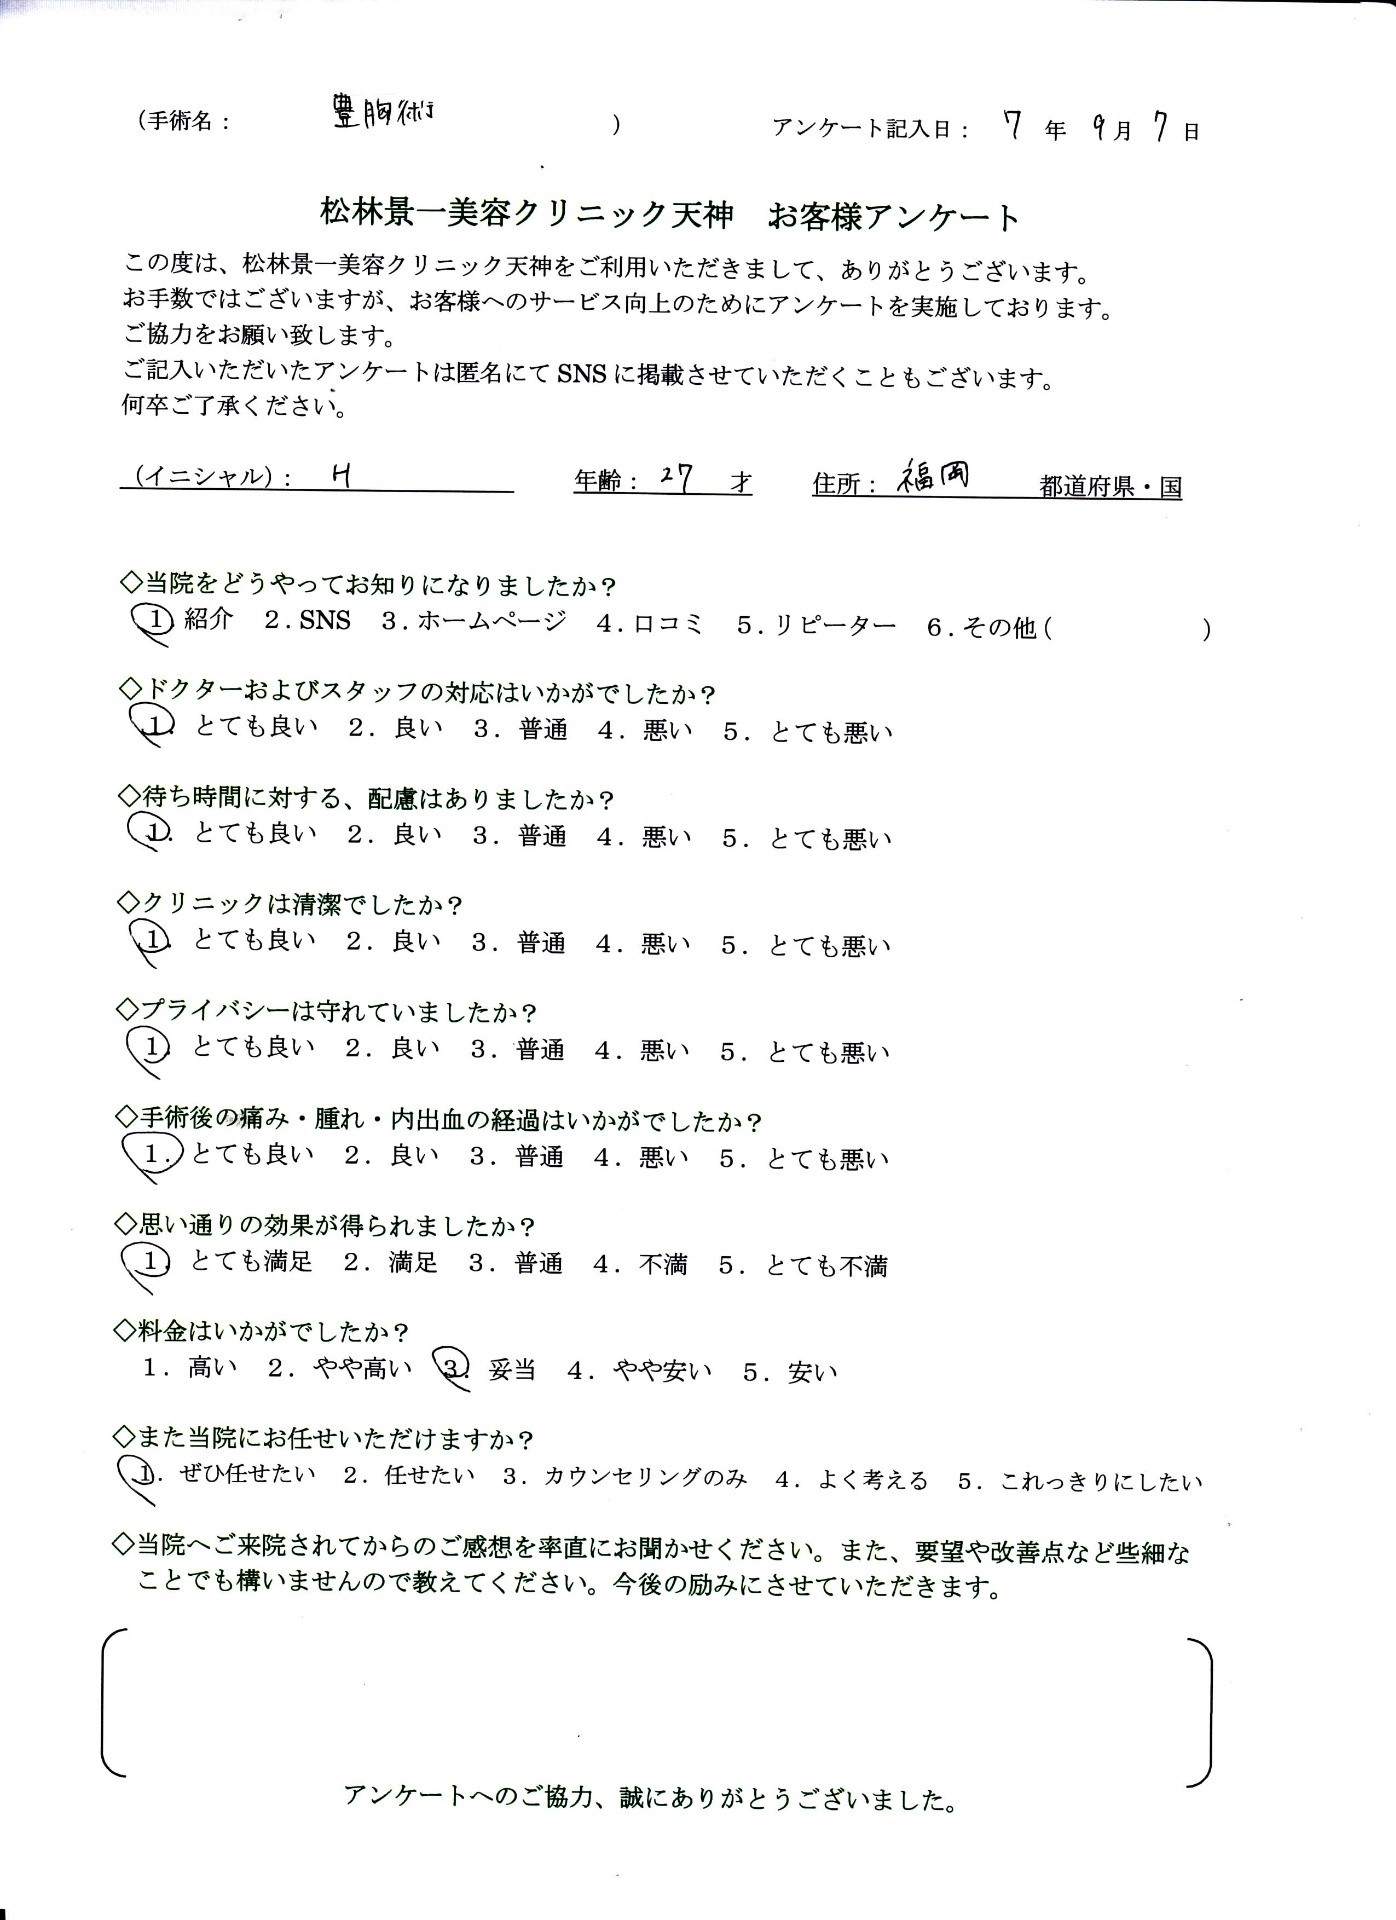 （手術名： 豊胸術 ） アンケート記入日： 7 年 9 月 7 日
松林景一美容クリニック天神　お客様アンケート
この度は、松林景一美容クリニック天神をご利用いただきまして、ありがとうございます。
お手数ではございますが、お客様へのサービス向上のためにアンケートを実施しております。
ご協力をお願い致します。
ご記入いただいたアンケートは匿名にて SNS に掲載させていただくこともございます。
何卒ご了承ください。
（イニシャル）： H 年齢： 27 才 住所： 福岡 都道府県・国
◇当院をどうやってお知りになりましたか？
1. 紹介 2. SNS 3. ホームページ 4. 口コミ 5. リピーター 6. その他（ ）
◇ドクターおよびスタッフの対応はいかがでしたか？
1. とても良い 2. 良い 3. 普通 4. 悪い 5. とても悪い
◇待ち時間に対する、配慮はありましたか？
1. とても良い 2. 良い 3. 普通 4. 悪い 5. とても悪い
◇クリニックは清潔でしたか？
1. とても良い 2. 良い 3. 普通 4. 悪い 5. とても悪い
◇プライバシーは守れていましたか？
1. とても良い 2. 良い 3. 普通 4. 悪い 5. とても悪い
◇手術後の痛み・腫れ・内出血の経過はいかがでしたか？
1. とても良い 2. 良い 3. 普通 4. 悪い 5. とても悪い
◇思い通りの効果が得られましたか？
1. とても満足 2. 満足 3. 普通 4. 不満 5. とても不満
◇料金はいかがでしたか？
1. 高い 2. やや高い 3. 妥当 4. やや安い 5. 安い
◇また当院にお任せいただけますか？
1. ぜひ任せたい 2. 任せたい 3. カウンセリングのみ 4. よく考える 5. これっきりにしたい
◇当院へご来院されてからのご感想を率直にお聞かせください。また、要望や改善点など些細な
ことでも構いませんので教えてください。今後の励みにさせていただきます。
アンケートへのご協力、誠にありがとうございました。